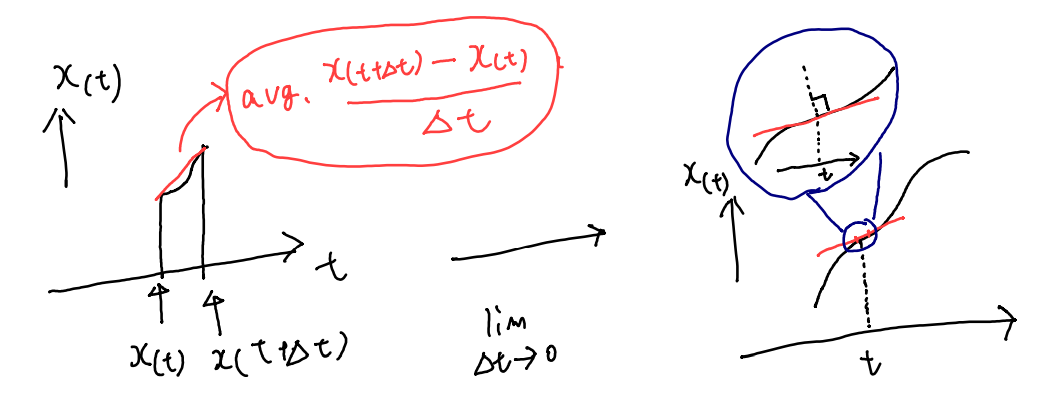 x(t)
avg. x(t+Δt) − x(t)
Δt
t
x(t) x(t+Δt)
lim
Δt→0
t
x(t)
t